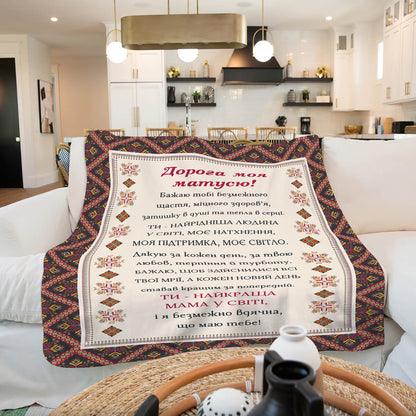 Дорога моя
матусю!
Бажаю тобі безмежного
щастя, міцного здоров'я,
затишку в душі та тепла в серці.
ТИ - НАЙРІДНІША ЛЮДИНА
У СВІТІ, МОЄ НАТХНЕННЯ,
МОЯ ПІДТРИМКА, МОЄ СВІТЛО.
Дякую за кожен день, за твою
любов, терпіння й турботу.
БАЖАЮ, ЩОБ ЗДІЙСНИЛАСЯ ВСІ
ТВОЇ МРІЇ, А КОЖЕН НОВИЙ ДЕНЬ
ставав кращим за попередній.
ТИ - НАЙКРАЩА
МАМА У СВІТІ,
і я безмежно вдячна,
що маю тебе!